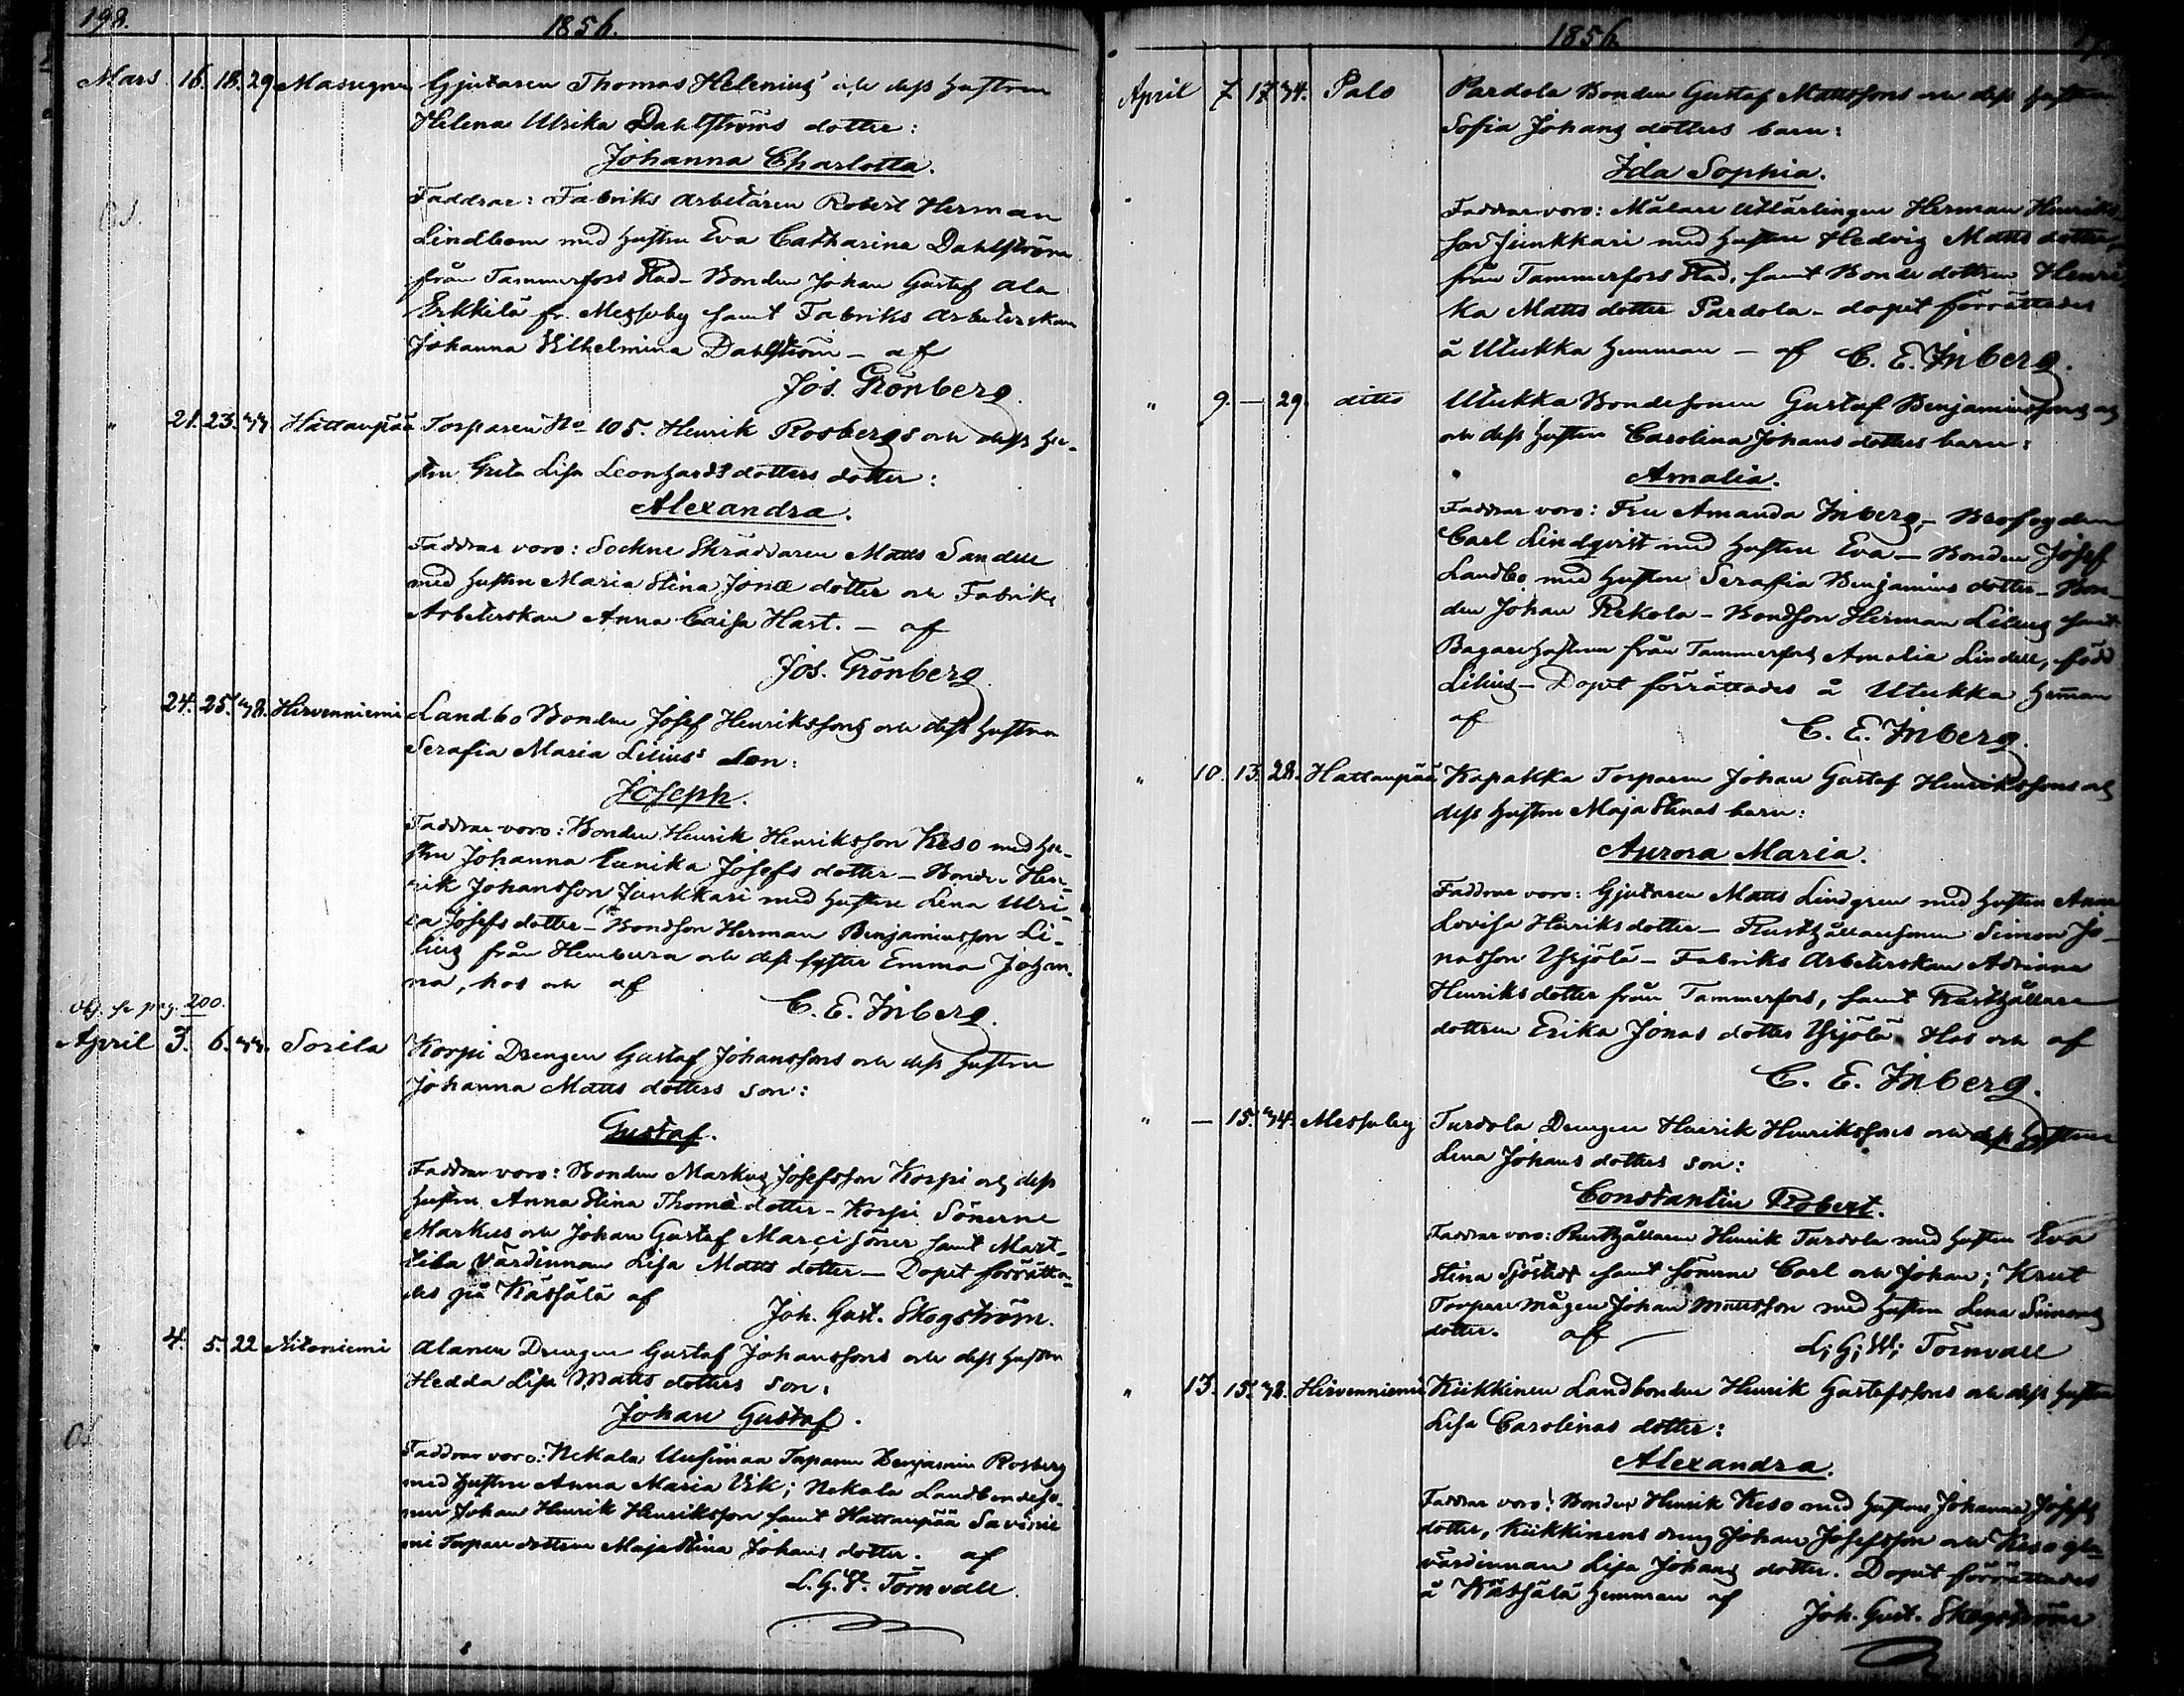 198.
1856.
Mars 16. 18. 29 Massegna Gjutaren Thomas Helenius' och dess hustrun
Helena Ulrika Dahlströms dotter:
Johanna Charlotta.
Faddrar: Fabriks Arbetaren Robert Herman
Lindbom med hustru Eva Catharina Dahlström
från Tammerfors Stad – Bonden Johan Gustaf Ala
Erkkilä fr. Messuby samt Fabriks Arbeterskan
Johanna Wilhelmina Dahlström – af
Jos. Grönberg.
" 21. 23. Hattanpää Torparen No 105. Henrik Rosbergs och dess hu-
stru Greta Lisa Leonhardsdotters dotter:
Alexandra.
Faddrar voro: Sockne Skräddaren Matts Sandell
med hustru Maria Stina Jonæ dotter och Fabriks
Arbeterskan Anna Caisa Hart. – af
Jos. Grönberg
24. 25. 38. Hirvenniemi Landbo Bonden Josef Henrikssons och dess hustrun
Serafia Maria Lilius' Son:
Joseph.
Faddrar voro: Bonden Henrik Henriksson Keso med hu-
stru Johanna Eunika Josefs dotter – Bonden Hen-
rik Johansson Junkkari med hustru Lena Ulri-
ca Josefs dotter – Bondson Herman Benjaminsson Li-
lius från Hembura och dess syster Emma Johan-
na, hos och af
C. E. Inberg.
Obs. se pag. 200.
April 3. 6. Sorila Korpi Drengen Gustaf Johanssons och dess hustrun
Johanna Matts dotters son:
Gustaf.
Faddrar voro: Bonden Markus Josefsson Korpi och dess
hustru Anna Stina Thomæ dotter – Korpi Sönerne
Markus och Johan Gustaf Marci söner samt Mart-
tila Värdinnan Lisa Matts dotter – Dopet förrätta-
des på Kässälä af
Joh. Gust. Skogström.
" 4. 5. 22 Aitoniemi Alanen Drengen Gustaf Johanssons och dess hustru
Hedda Lisa Matts dotters son:
Johan Gustaf.
Faddrar voro: Nekala Uusimaa Torparen Benjamin Rosberg
med hustru Anna Maria Vik; Nekala Landbondeso-
nen Johan Henrik Henriksson samt Hattanpää Savinie
mi Torpare dottren Maja Stina Johans dotter. af
L. G. W. Törnvall.
1856.
April 7. 17 34. Palo Pardola Bonden Gustaf Mattssons och dess hustrun
Sofia Johans dotters barn:
Ida Sophia.
Faddrar voro: Målare Utlärlingen Herman Henriks-
son Junkkari med hustru Hedvig Matts dotter
från Tammerfors Stad, samt Bonde dottren Henri-
ka Matts dotter Pardola – dopet förrättades
å Utukka hemman – af C. E. Inberg.
" 9. — 29. ditto Utukka Bondesonen Gustaf Benjaminssons och
och dess hustru Carolina Johans dotters barn:
Amalia.
Faddrar voro: Fru Amanda Inberg, – Brofogden
Carl Lindqvist med hustru Eva – Bonden Josef
Landbo med hustru Serafia Benjamins dotter – Bon-
den Johan Rekola – Bondson Herman Lilius samt
Bagarehustrun från Tammerfors Amalia Lindell, född
Lilius – Dopet förrättades å Utukka heman
af
C. E. Inberg.
" 10. 13. 28. Hattanpää Kapakka Torparen Johan Gustaf Henrikssons och
dess hustru Maja Stinas barn:
Aurora Maria.
Faddrar voro: Gjutaren Matts Lindgren med hustru Anna
Lovisa Henriks dotter – Rusthållaresonen Simon Jo-
nasson Yrjölä – Fabriks Arbeterskan Adriana
Henriks dotter från Tammerfors, samt Rusthållare
dottren Erika Jonas dotter Yrjölä. Hos och af
C. E. Inberg.
" — 15. 34. Messuby Turdola Drengen Henrik Henrikssons och dess hustrun
Lena Johans dotters son:
Constantin Robert.
Faddrar voro: Rusthållaren Henrik Turdola med hustru Eva
Stina Sjöstedt samt sönerne Carl och Johan; Krut
Torpare mågen Johan Mattsson med hustru Lena Simons
dotter. af
L; G; W; Törnvall
" 13. 15. 32. Hirvenniemi Kiikkinen Landbonden Henrik Gustafssons och dess hustrun
Lisa Carolinas dotter:
Alexandra.
Faddrar voro: Bonden Henrik Keso med hustrun Johanna Josefs
dotter, Kiikkinens dreng Johan Josefsson och Keso gla-
värdinnan Lisa Johans dotter. Dopet förrättades
å Kässälä hemman af
Joh. Gust. Skogström